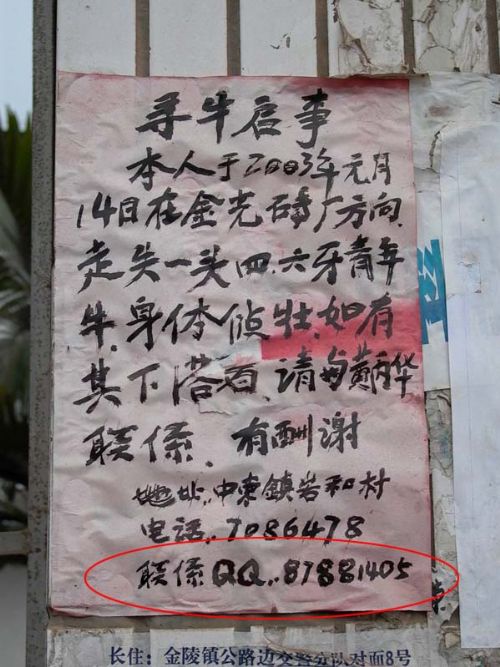 寻牛启事
本人于2003年元月
14日在金光砖厂方向,
走失一头四.六牙青年
牛,身体侦壮,如有
其下落看,请与黄丙华
联係,有酬谢
地址:中东鎮岩和村
电话:7086478
联係QQ:87881405
长住:金陵镇公路边交警分队对面8号